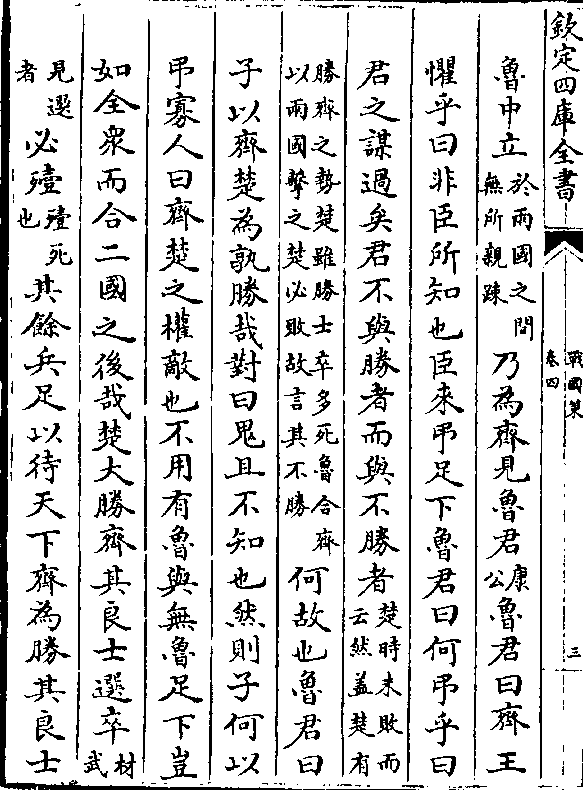 欽定四庫全書
戰國策
卷四
三
魯中立於兩國之間無所親疎乃為齊見魯君康公魯君曰齊王
懼乎曰非臣所知也臣來弔足下魯君曰何弔乎曰
君之謀過矣君不與勝者而與不勝者楚時未敗而云然葢楚有
勝齊之勢楚雖勝士卒多死魯合齊以兩國擊之楚必敗故言其不勝何故也魯君曰
子以齊楚為孰勝哉對曰鬼且不知也然則子何以
弔寡人曰齊楚之權敵也不用有魯與無魯足下豈
如全衆而合二國之後哉楚大勝齊其良士選卒材武
見選者必殪殪死也其餘兵足以待天下齊為勝其良士